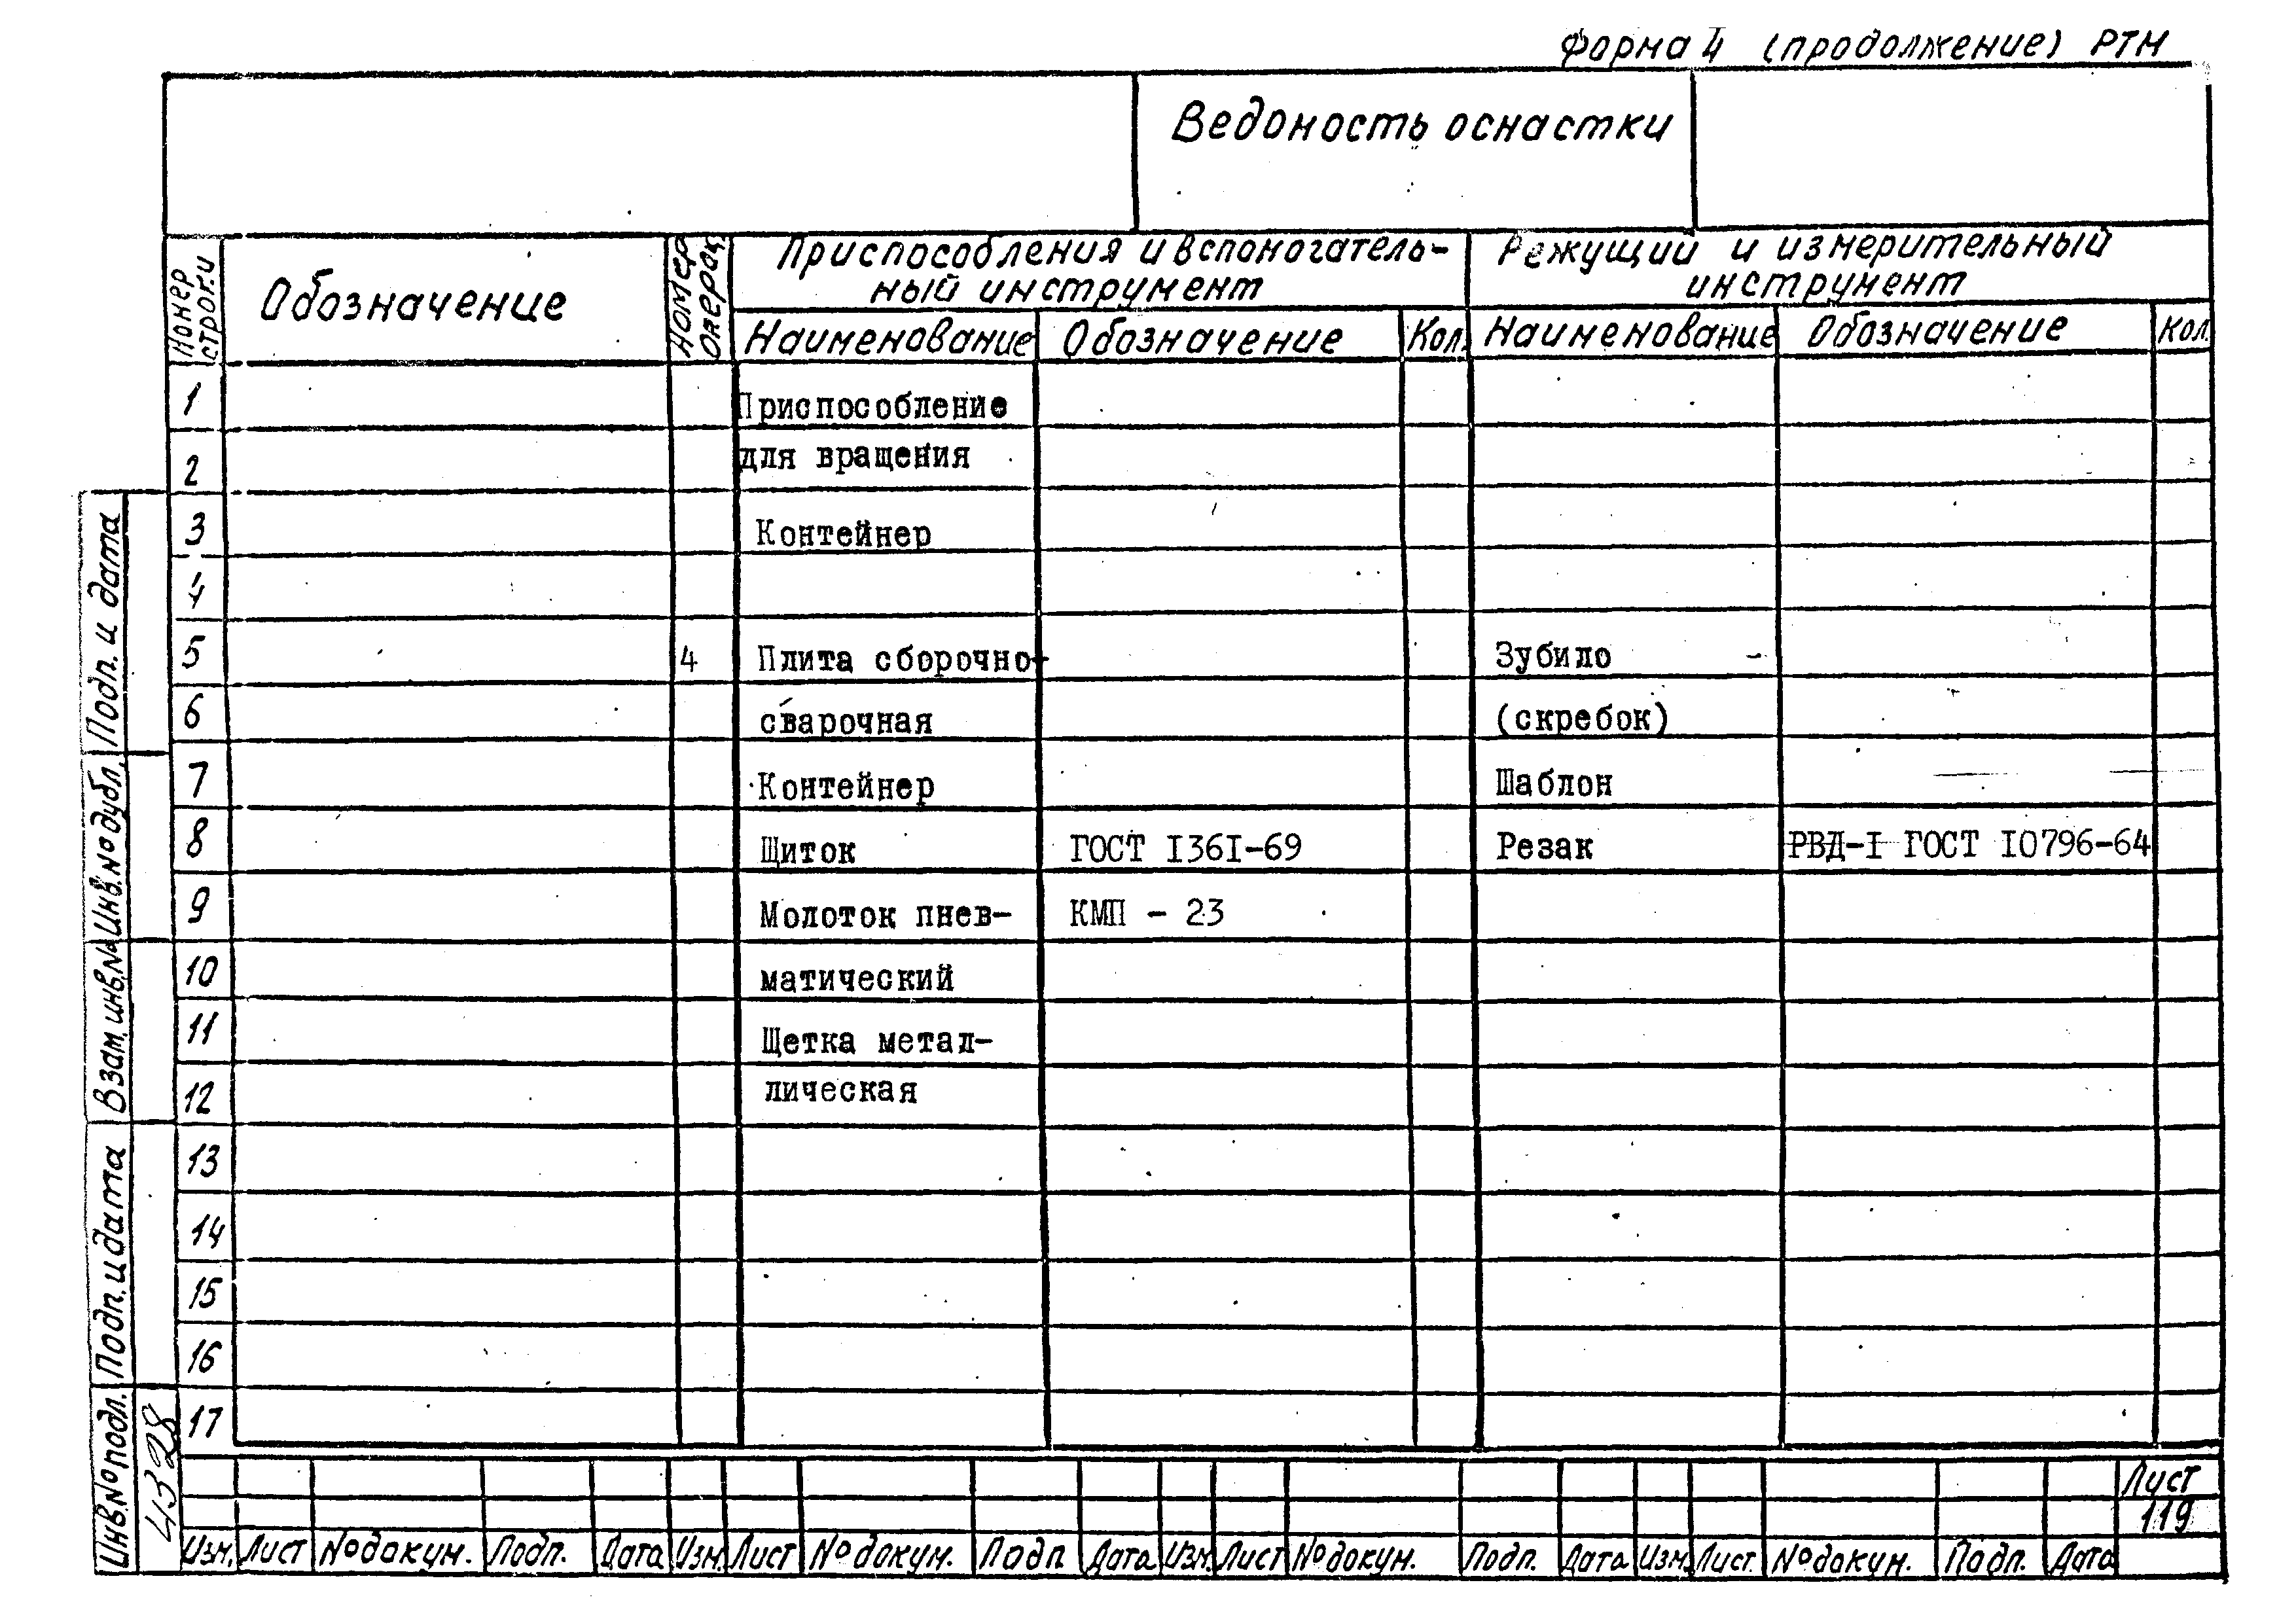 Форма 4 (продолжение) РТМ
Ведомость оснастки
Номер строки
Обозначение
Номер операц.
Приспособления и вспомогатель-
ный инструмент
Режущий и измерительный
инструмент
Наименование Обозначение Кол. Наименование Обозначение Кол.
1 Приспособление
2 для вращения
3 Контейнер
4
5 4 Плита сборочно- Зубило
6 сварочная (скребок)
7 Контейнер Шаблон
8 Щиток ГОСТ I36I-69 Резак РВД-I ГОСТ I0796-64
9 Молоток пнев- КМП - 23
10 матический
11 Щетка метал-
12 лическая
13
14
15
16
17
Подп. и дата
Инв.№ дубл.
Взам.инв.№
Подп. и дата
Инв.№ подл.
4328
Лист
119
Изм. Лист № докум. Подп. Дата Изм. Лист № докум. Подп Дата Изм. Лист № докум. Подп. Дата Изм. Лист. № докум. Подп. Дата